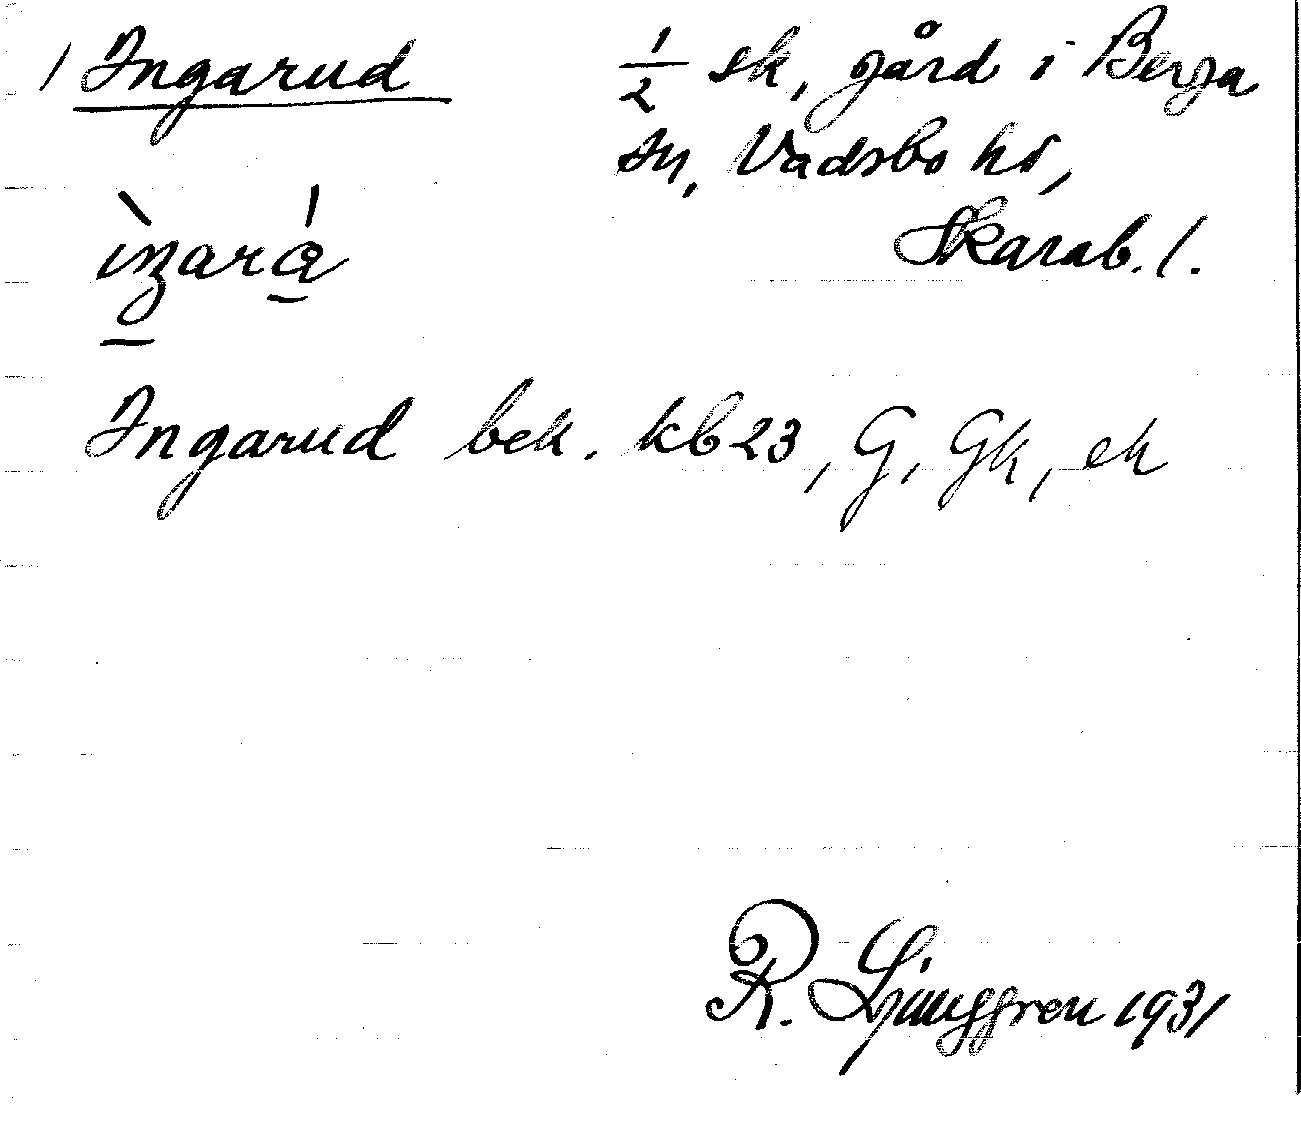 / Ingarud
1/2 sk, gård i Berga
sn, Vadsbo hd,
Skarab. l.
Ingarud bek. kb 23, G, Gk, ek
R. Ljunggren 1931